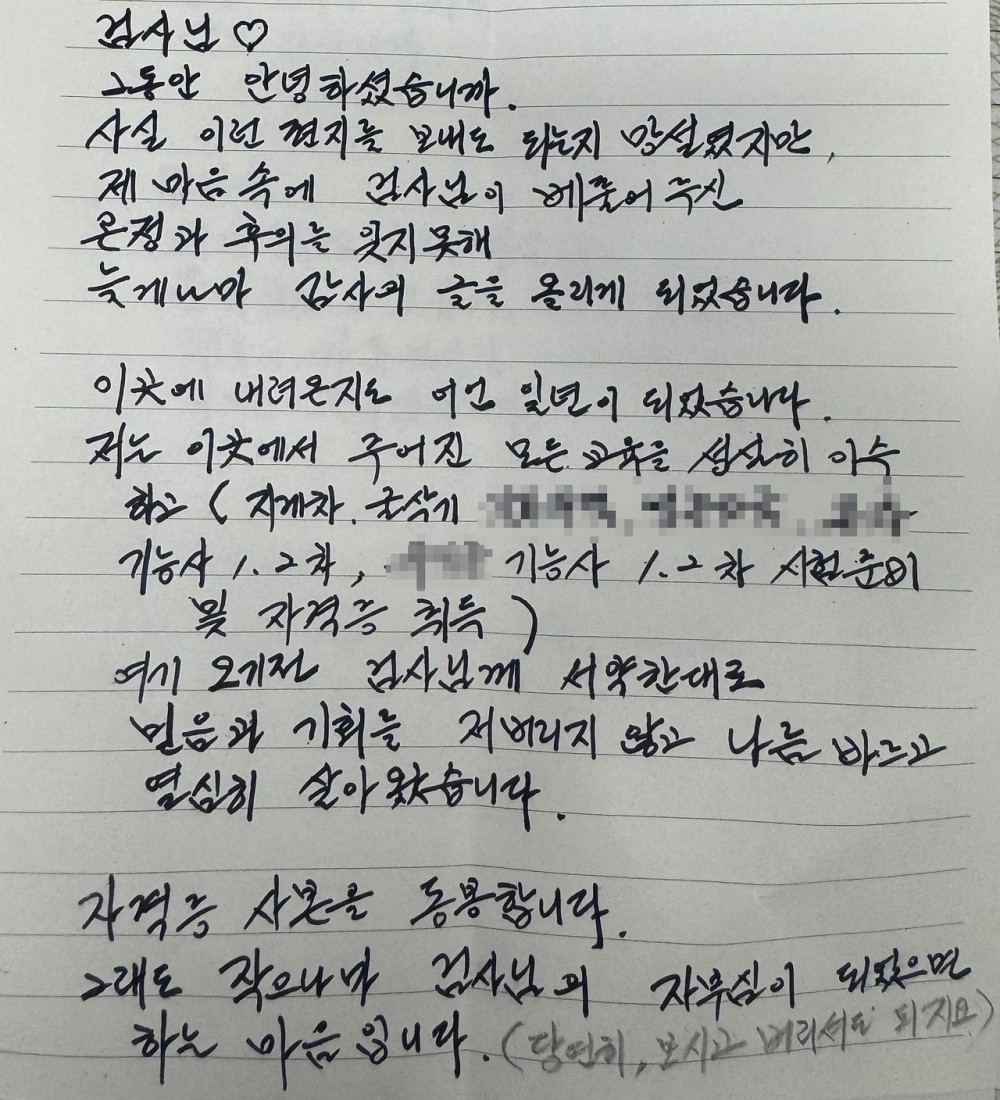 검사님 ♡
그동안 안녕하셨습니까.
사실 이런 편지를 보내도 되는지 망설였지만,
제 마음속에 검사님이 베풀어 주신
온정과 후의를 잊지못해
늦게나마 감사의 글을 올리게 되었습니다.
이곳에 내려온지도 어언 일년이 되었습니다.
저는 이곳에서 주어진 모든 교육을 성실히 이수
하고 ( 지게차. 굴삭기
기능사 1.2차, 기능사 1.2차 시험준비
및 자격증 취득 )
여기 오기전 검사님께 서약한대로
믿음과 기회를 저버리지 않고 나름 바르고
열심히 살아 왔습니다.
자격증 사본을 동봉합니다.
그래도 작으나마 검사님의 자부심이 되었으면
하는 마음입니다. (당연히, 보시고 버리셔도 되지요)